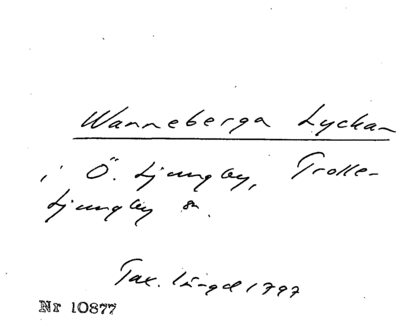 Wanneberga Lyckan
i Ö. Ljungby, Trolle-
Ljungby sn.
Tax. längd 1797
Nr 10877